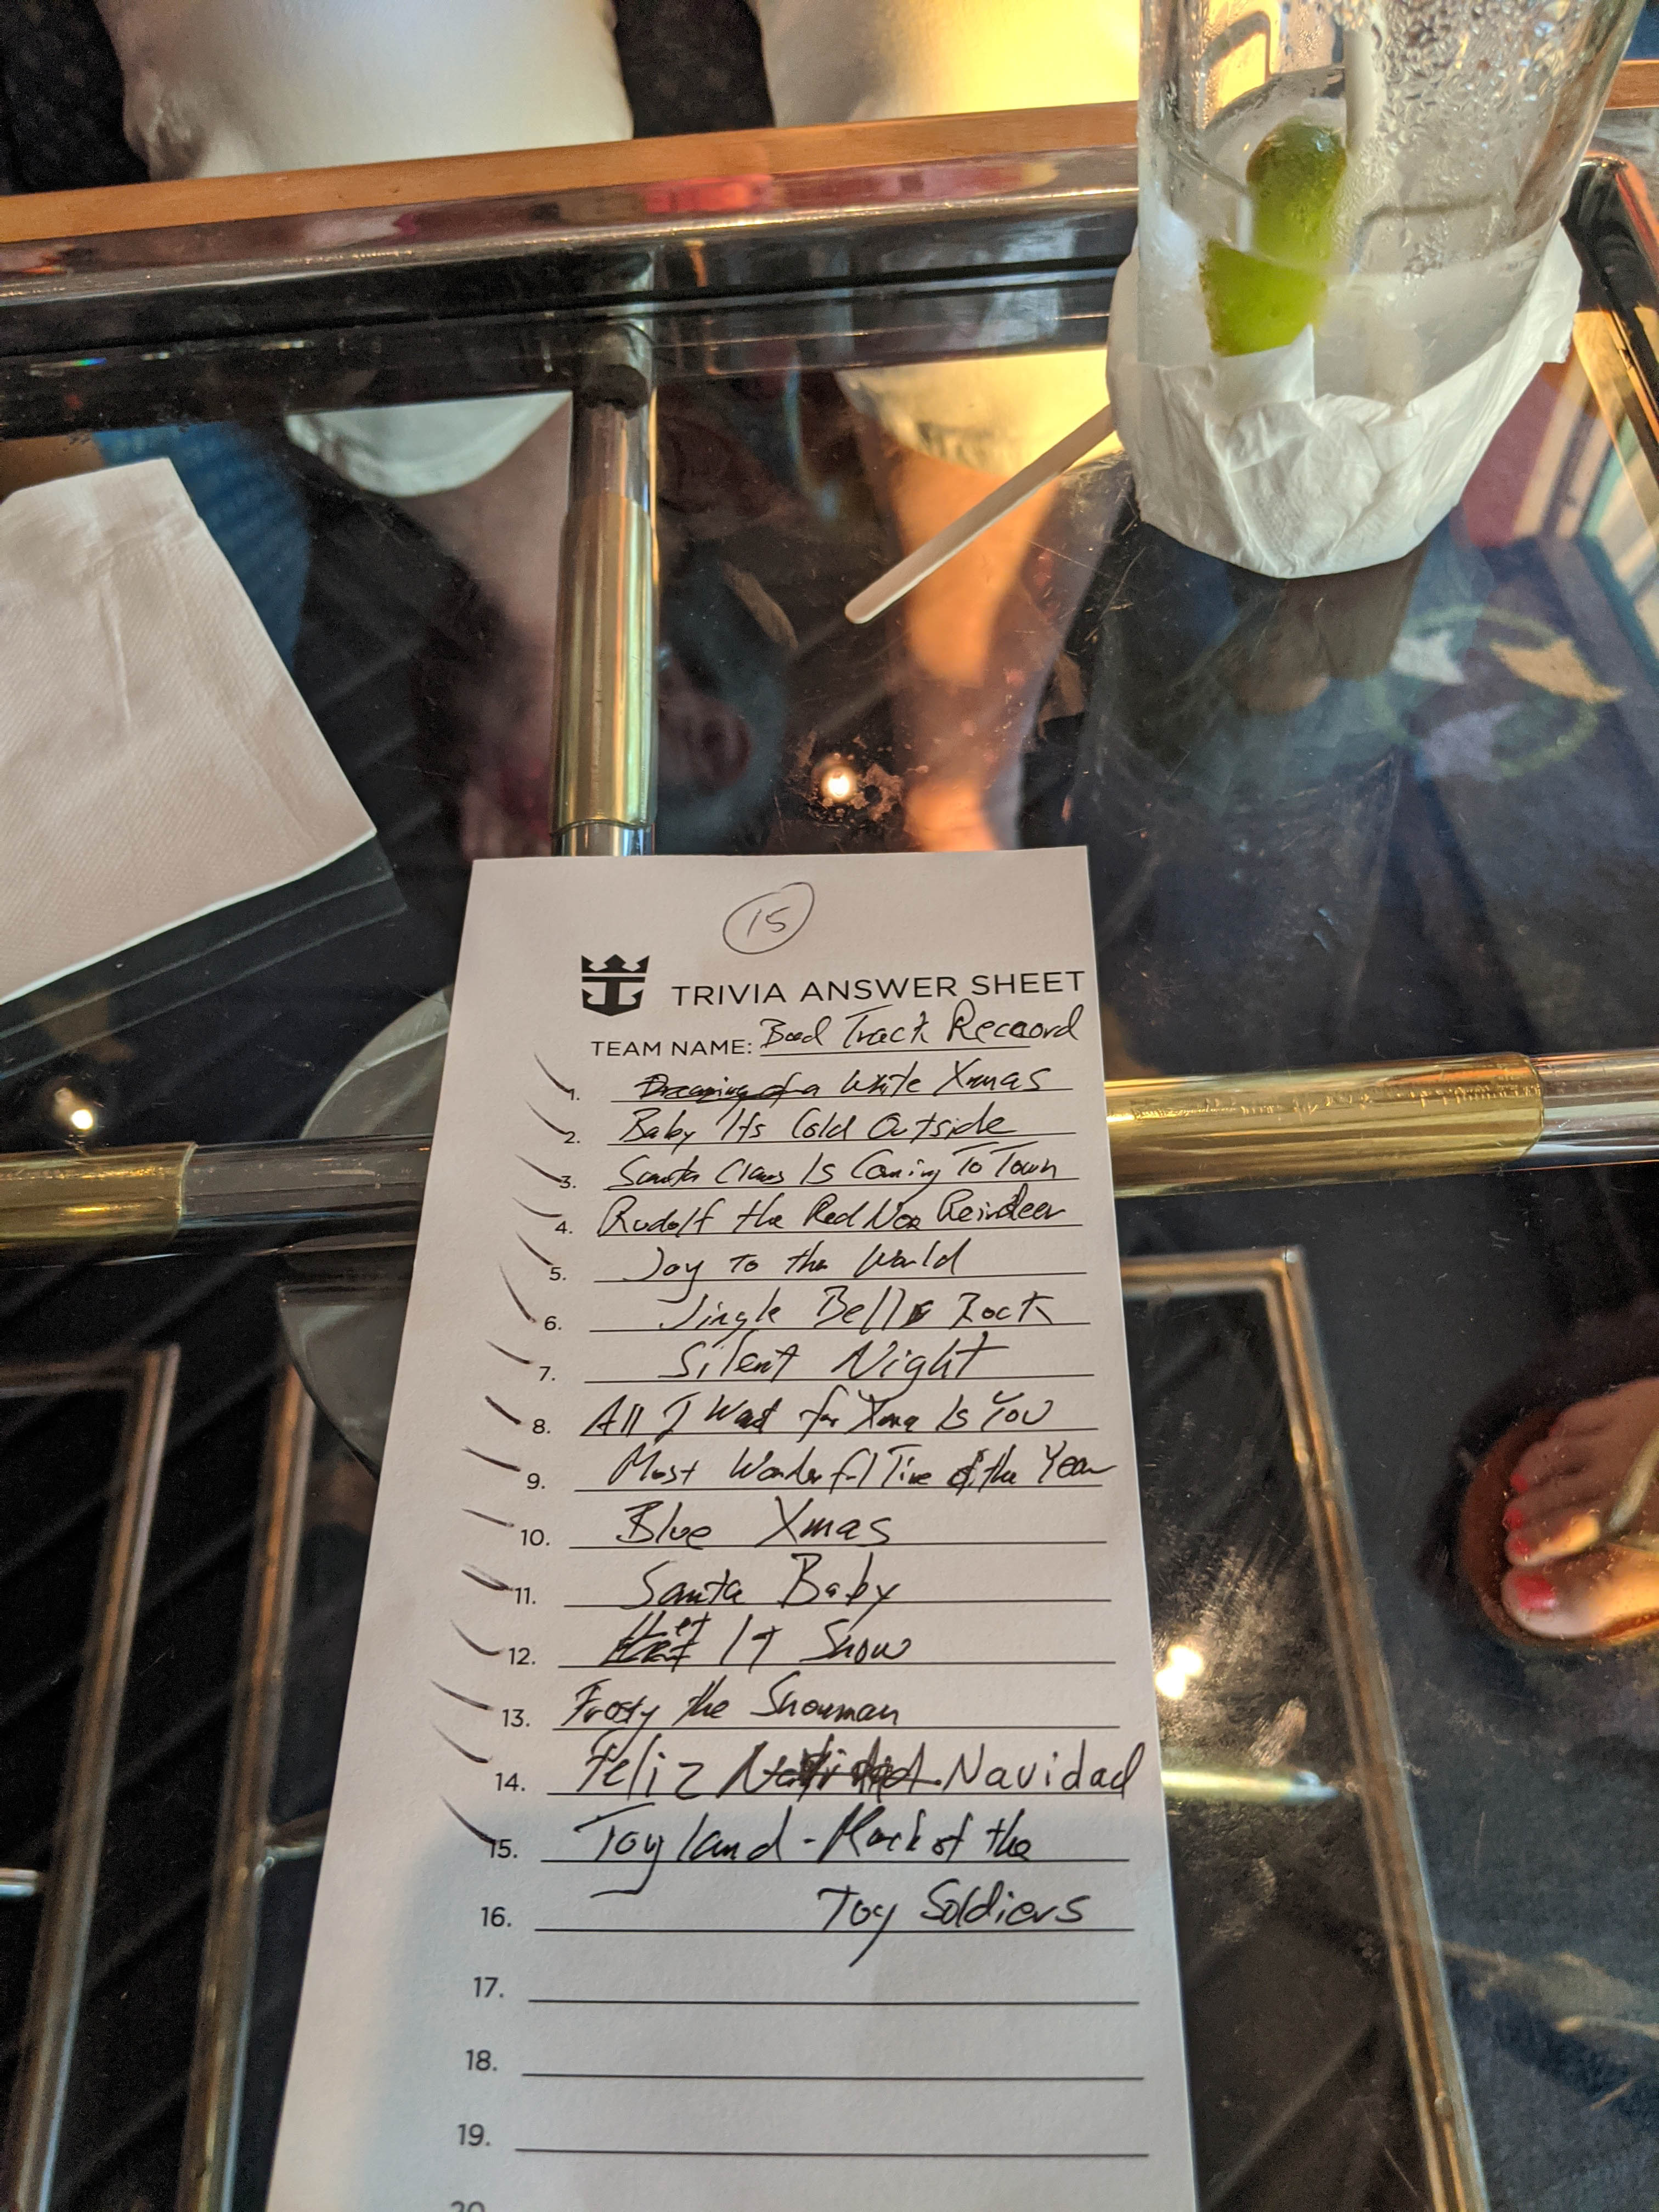 15
TRIVIA ANSWER SHEET
TEAM NAME: Bad Track Record
1. Dreaming of a White Xmas
2. Baby Its Cold Outside
3. Santa Claus Is Coming To Town
4. Rudolf the Red Nose Reindeer
5. Joy To the World
6. Jingle Bell Rock
7. Silent Night
8. All I Want for Xmas Is You
9. Most Wonderful Time of the Year
10. Blue Xmas
11. Santa Baby
12. Let It Snow
13. Frosty the Snowman
14. Feliz Navidad
15. Toyland - March of the
16. Toy Soldiers
17.
18.
19.
20.